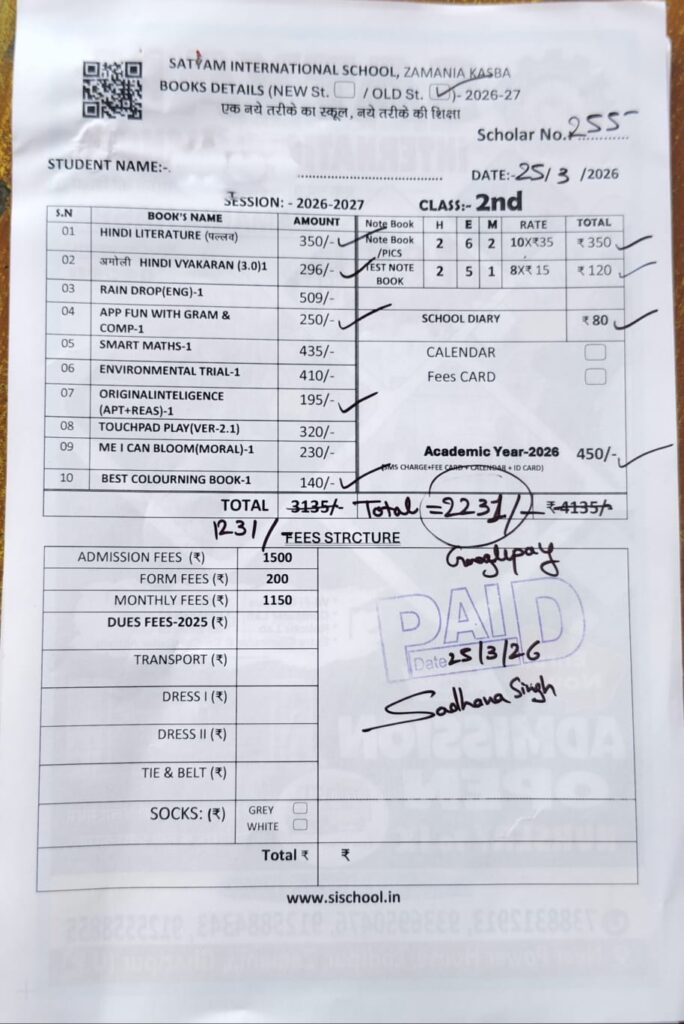 SATYAM INTERNATIONAL SCHOOL, ZAMANIA KASBA
BOOKS DETAILS (NEW St. / OLD St. )- 2026-27
एक नये तरीके का स्कूल, नये तरीके की शिक्षा
Scholar No. 255
STUDENT NAME:-
DATE:-25/3/2026
SESSION: - 2026-2027 CLASS:- 2nd
S.N BOOK'S NAME AMOUNT Note Book H E M RATE TOTAL
01 HINDI LITERATURE (पल्लव) 350/- Note Book /PICS 2 6 2 10X₹35 ₹ 350
02 अमोली HINDI VYAKARAN (3.0)1 296/- TEST NOTE BOOK 2 5 1 8X₹ 15 ₹ 120
03 RAIN DROP(ENG)-1 509/-
04 APP FUN WITH GRAM & COMP-1 250/- SCHOOL DIARY ₹ 80
05 SMART MATHS-1 435/- CALENDAR
06 ENVIRONMENTAL TRIAL-1 410/- Fees CARD
07 ORIGINALINTELIGENCE (APT+REAS)-1 195/-
08 TOUCHPAD PLAY(VER-2.1) 320/-
09 ME I CAN BLOOM(MORAL)-1 230/- Academic Year-2026 450/-
(SMS CHARGE+FEE CARD + CALENDAR + ID CARD)
10 BEST COLOURNING BOOK-1 140/-
TOTAL 3135/- Total = 2231/- ₹ 4135/-
1231/
FEES STRCTURE
ADMISSION FEES (₹) 1500 Googlepay
FORM FEES (₹) 200
MONTHLY FEES (₹) 1150
DUES FEES-2025 (₹) PAID
TRANSPORT (₹) Date 25/3/26
DRESS I (₹) Sadhana Singh
DRESS II (₹)
TIE & BELT (₹)
SOCKS: (₹) GREY
WHITE
Total ₹ ₹
www.sischool.in